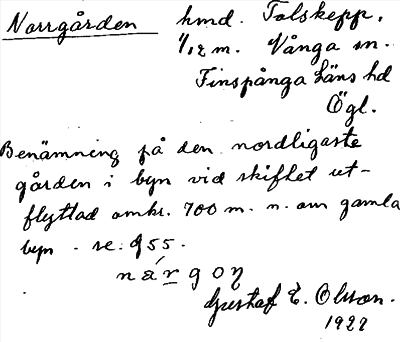 Norrgården hmd. Tolskepp,
1/12 m. Vånga sn.
Finspånga läns hd
Ögl.
Benämning på den nordligaste
gården i byn vid skiftet ut-
flyttad omkr. 700 m. n. om gamla
byn. se. g 55.
nárgoŋ
Gustaf E. Olsson.
1922